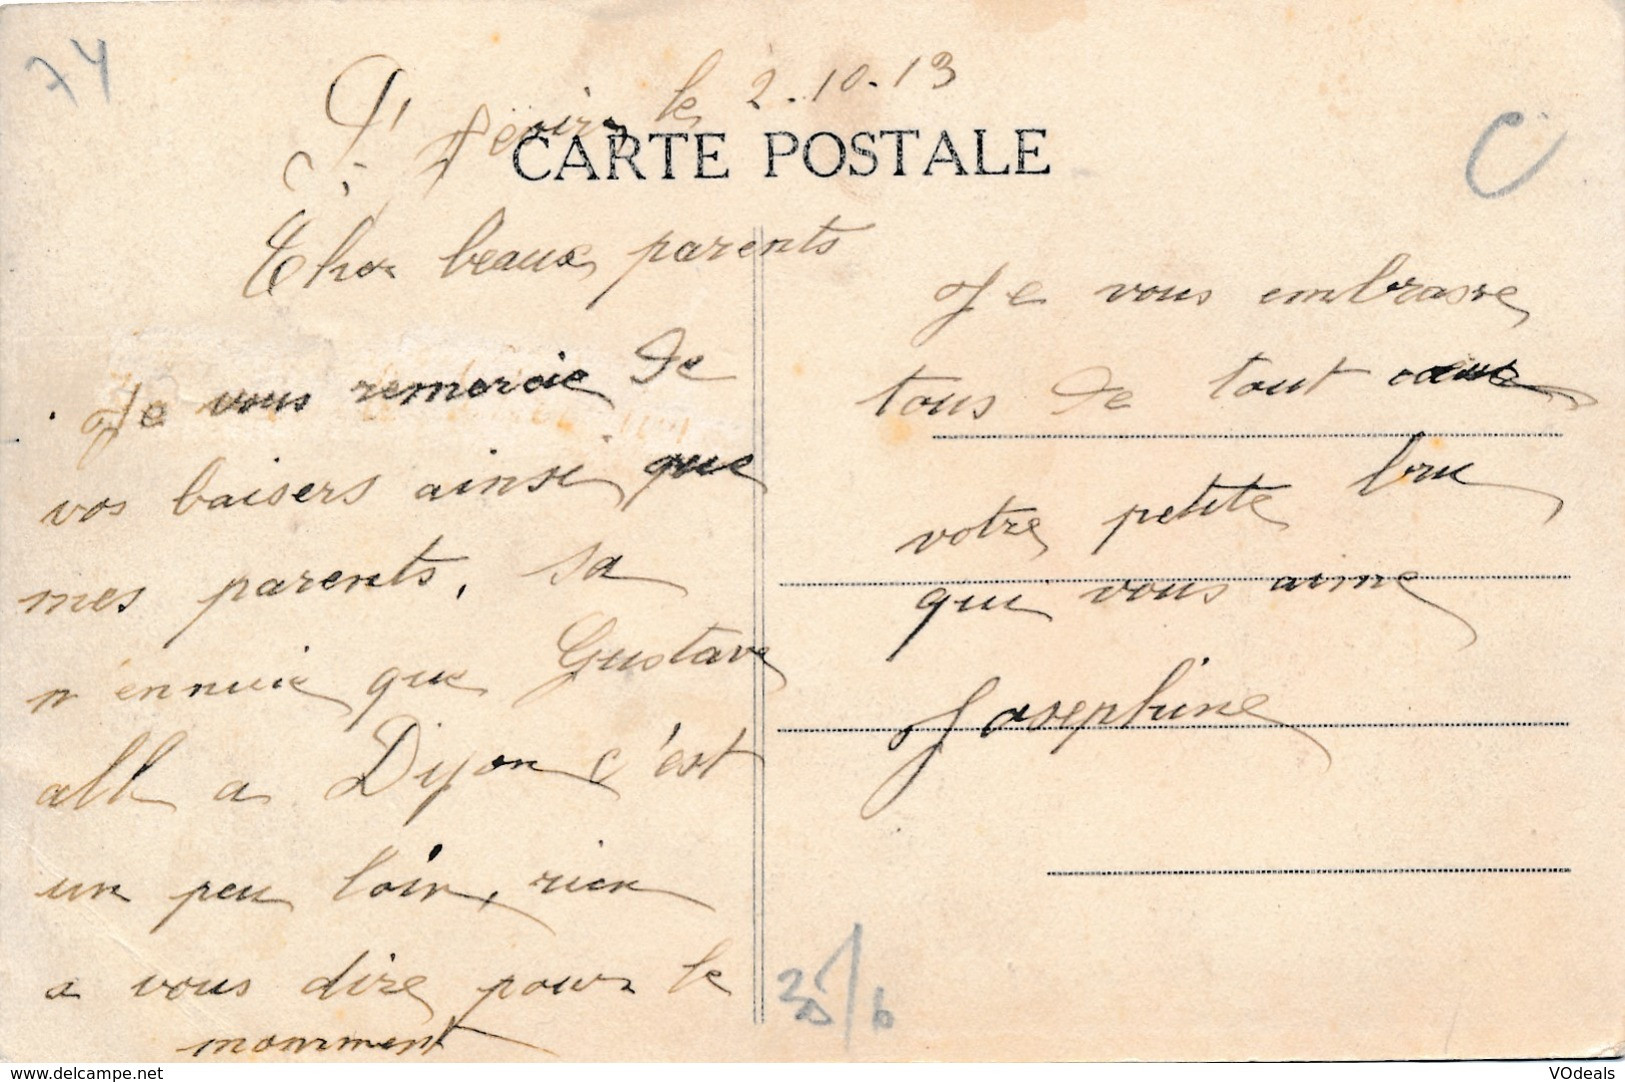 74
le 2.10.13
CARTE POSTALE
C
Cher beaux parents
Je vous remercie de
vos baisers ainsi que
mes parents, sa
m'ennuie que Gustave
all a Dijon c'est
un peu loin, rien
a vous dire pour le
mourment
Je vous embrasse
tous de tout cœur
votre petite bru
qui vous aime
Josephine
www.delcampe.net
VOdeals